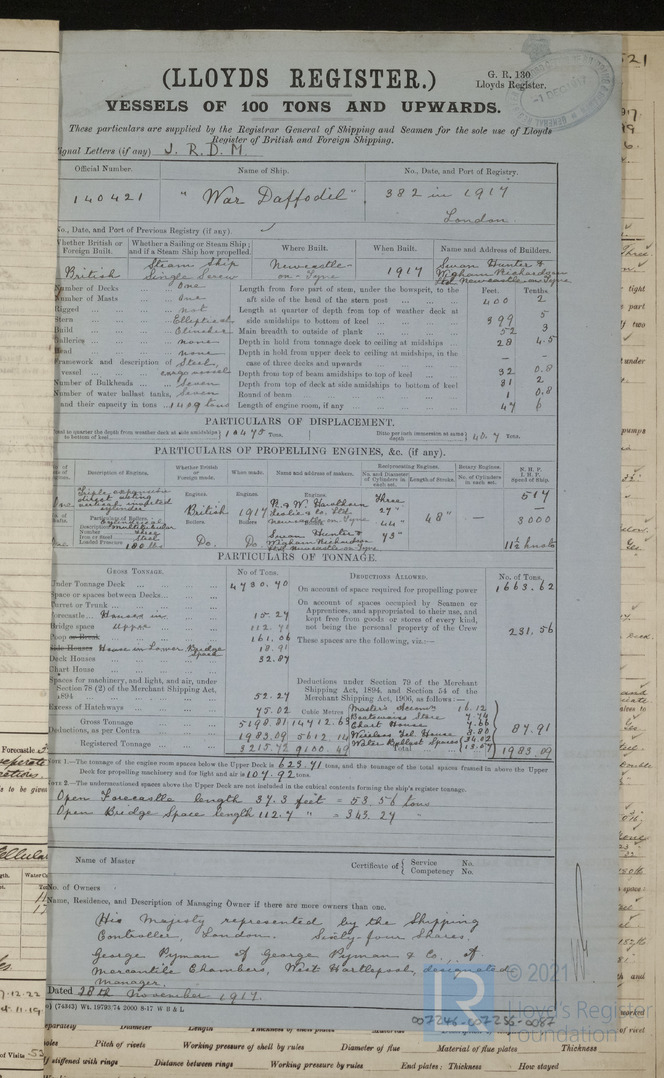 (LLOYDS REGISTER.)
G. R. 130
Lloyds Register.
VESSELS OF 100 TONS AND UPWARDS.
These particulars are supplied by the Registrar General of Shipping and Seamen for the sole use of Lloyds
Register of British and Foreign Shipping.
ignal Letters (if any) J. R. D. M.
Official Number. Name of Ship. No., Date, and Port of Registry.
140421 "War Daffodil" 382 in 1917
London
No., Date, and Port of Previous Registry (if any).
Whether British or Foreign Built. Whether a Sailing or Steam Ship; and if a Steam Ship how propelled. Where Built. When Built. Name and Address of Builders.
British Steam Ship Single Screw Newcastle-on-Tyne 1917 Swan Hunter & Wigham Richardson Ltd Newcastle on Tyne
Number of Decks One
Number of Masts One
Rigged not
Stern Elliptical
Build Clincher
Galleries none
Head none
Framework and description of vessel Steel, cargo vessel
Number of Bulkheads Seven
Number of water ballast tanks, Seven
and their capacity in tons 1409 tons
Feet. Tenths.
Length from fore part of stem, under the bowsprit, to the
aft side of head of the stern post 400 2
Length at quarter of depth from top of weather deck at
side amidships to bottom of keel 399 5
Main breadth to outside of plank 52 3
Depth in hold from tonnage deck to ceiling at midships 28 4.5
Depth in hold from upper deck to ceiling at midships, in the
case of three decks and upwards – –
Depth from top of beam amidships to top of keel 32 0.8
Depth from top of deck at side amidships to bottom of keel 31 2
Round of beam 1 0.8
Length of engine room, if any 47 6
PARTICULARS OF DISPLACEMENT.
to quarter the depth from weather deck at side amidships to bottom of keel 10475 Tons.
Ditto per inch immersion at same depth 40.7 Tons.
PARTICULARS OF PROPELLING ENGINES, &c. (if any).
Description of Engines. Whether British or Foreign made. When made. Name and address of makers. Reciprocating Engines. No. and Diameter of Cylinders in each set. Length of Stroke. Rotary Engines. No. of Cylinders in each set. N. H. P. I. H. P. Speed of Ship.
Triple expansion direct acting vertical inverted cylinder
Engines. British Engines. 1917 Engines. R. & W. Hawthorn Leslie & Co. Ltd Newcastle on Tyne
Three 27" 44" 73" 48" – 517 3000 11½ knots
Particulars of Boilers.
Description Cylindrical multitubular
Number three
Iron or Steel Steel
Loaded Pressure 180 lbs
Boilers Do. Boilers Do. Swan Hunter & Wigham Richardson Ltd Newcastle on Tyne
PARTICULARS OF TONNAGE.
GROSS TONNAGE. No of Tons. DEDUCTIONS ALLOWED. No. of Tons.
Under Tonnage Deck 4730.70
Space or spaces between Decks
Turret or Trunk
Forecastle Houses in 15.27
Bridge space Upper 112.71
Poop or Break 161.06
Side Houses House in Lower Bridge Space 18.91
Deck Houses 32.87
Chart House
Spaces for machinery, and light, and air, under
Section 78 (2) of the Merchant Shipping Act,
1894 52.27
Excess of Hatchways 75.02
Cubic Metres
Gross Tonnage 5198.81 14712.63
Deductions, as per Contra 1983.09 5612.14
Registered Tonnage 3215.72 9100.49
On account of space required for propelling power 1663.62
On account of spaces occupied by Seamen or
Apprentices, and appropriated to their use, and
kept free from goods or stores of every kind,
not being the personal property of the Crew 231.56
These spaces are the following, viz:—
Deductions under Section 79 of the Merchant
Shipping Act, 1894, and Section 54 of the
Merchant Shipping Act, 1906, as follows:—
Master's Accom. 16.12
Boatswains Store 7.74
Chart House 7.66
Wireless Tel. House 8.80
Water Ballast Spaces 34.02
13.57
87.91
Total 1983.09
NOTE 1.—The tonnage of the engine room spaces below the Upper Deck is 623.71 tons, and the tonnage of the total spaces framed in above the Upper
Deck for propelling machinery and for light and air is 107.92 tons.
NOTE 2.—The undermentioned spaces above the Upper Deck are not included in the cubical contents forming the ship's register tonnage.
Open Forecastle length 37.3 feet = 53.56 tons
Open Bridge Space length 112.7 " = 343.27 "
Name of Master Certificate of { Service No.
Competency No.
No. of Owners
Name, Residence, and Description of Managing Owner if there are more owners than one.
His Majesty represented by the Shipping
Controller, London. Sixty-four Shares.
George Pyman of George Pyman & Co., of
Mercantile Chambers, West Hartlepool, designated
manager.
Dated 28th November 1917.
(74343) Wt. 19793/74 2000 8-17 W B & L
© 2021
LR
Lloyd's Register
Foundation
007246-007256-0087
Diameter Length Thickness of shell plates Material
Pitch of rivets Working pressure of shell by rules Diameter of flue Material of flue plates Thickness
If stiffened with rings Distance between rings Working pressure by rules End plates: Thickness How stayed